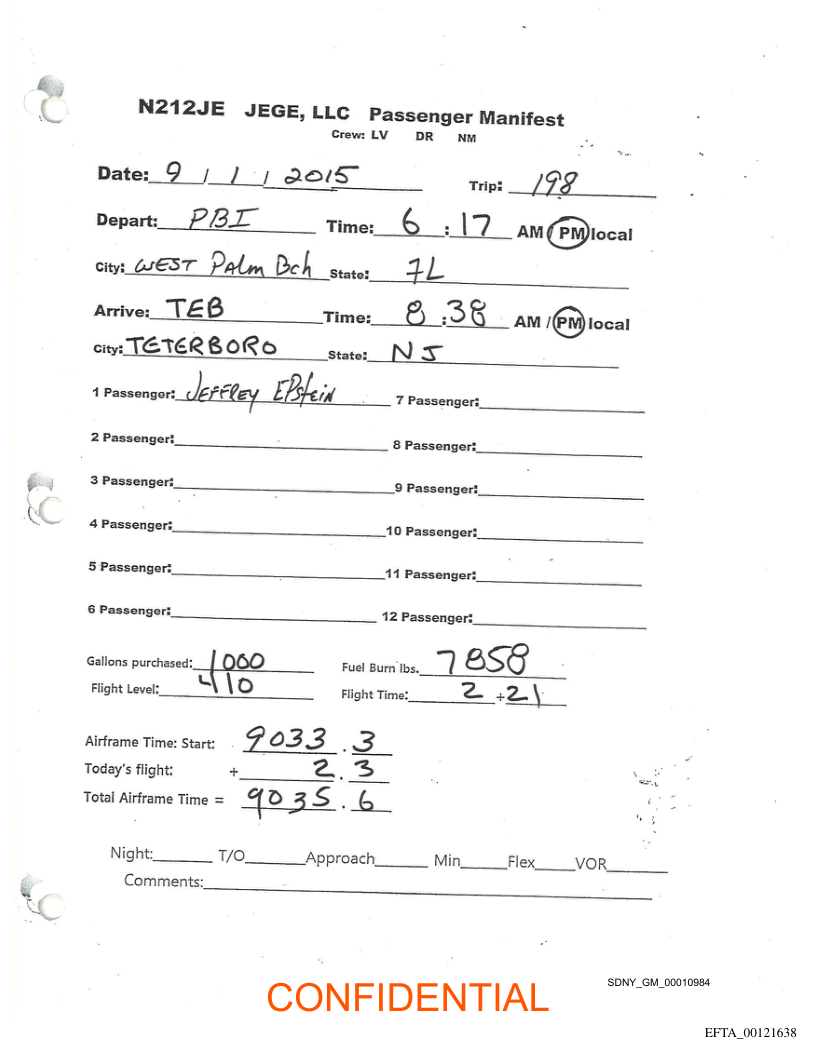 N212JE JEGE, LLC Passenger Manifest
Crew: LV DR NM
Date: 9 / 1 / 2015 Trip: 198
Depart: PBI Time: 6 : 17 AM / PM local
City: WEST PALM Bch State: FL
Arrive: TEB Time: 8 : 38 AM / PM local
City: TETERBORO State: NJ
1 Passenger: JEFFREY EPStEiN 7 Passenger:
2 Passenger: 8 Passenger:
3 Passenger: 9 Passenger:
4 Passenger: 10 Passenger:
5 Passenger: 11 Passenger:
6 Passenger: 12 Passenger:
Gallons purchased: 1000 Fuel Burn lbs. 7858
Flight Level: 410 Flight Time: 2 + 21
Airframe Time: Start: 9033 . 3
Today's flight: + 2 . 3
Total Airframe Time = 9035 . 6
Night: T/O Approach Min Flex VOR
Comments:
SDNY_GM_00010984
CONFIDENTIAL
EFTA_00121638